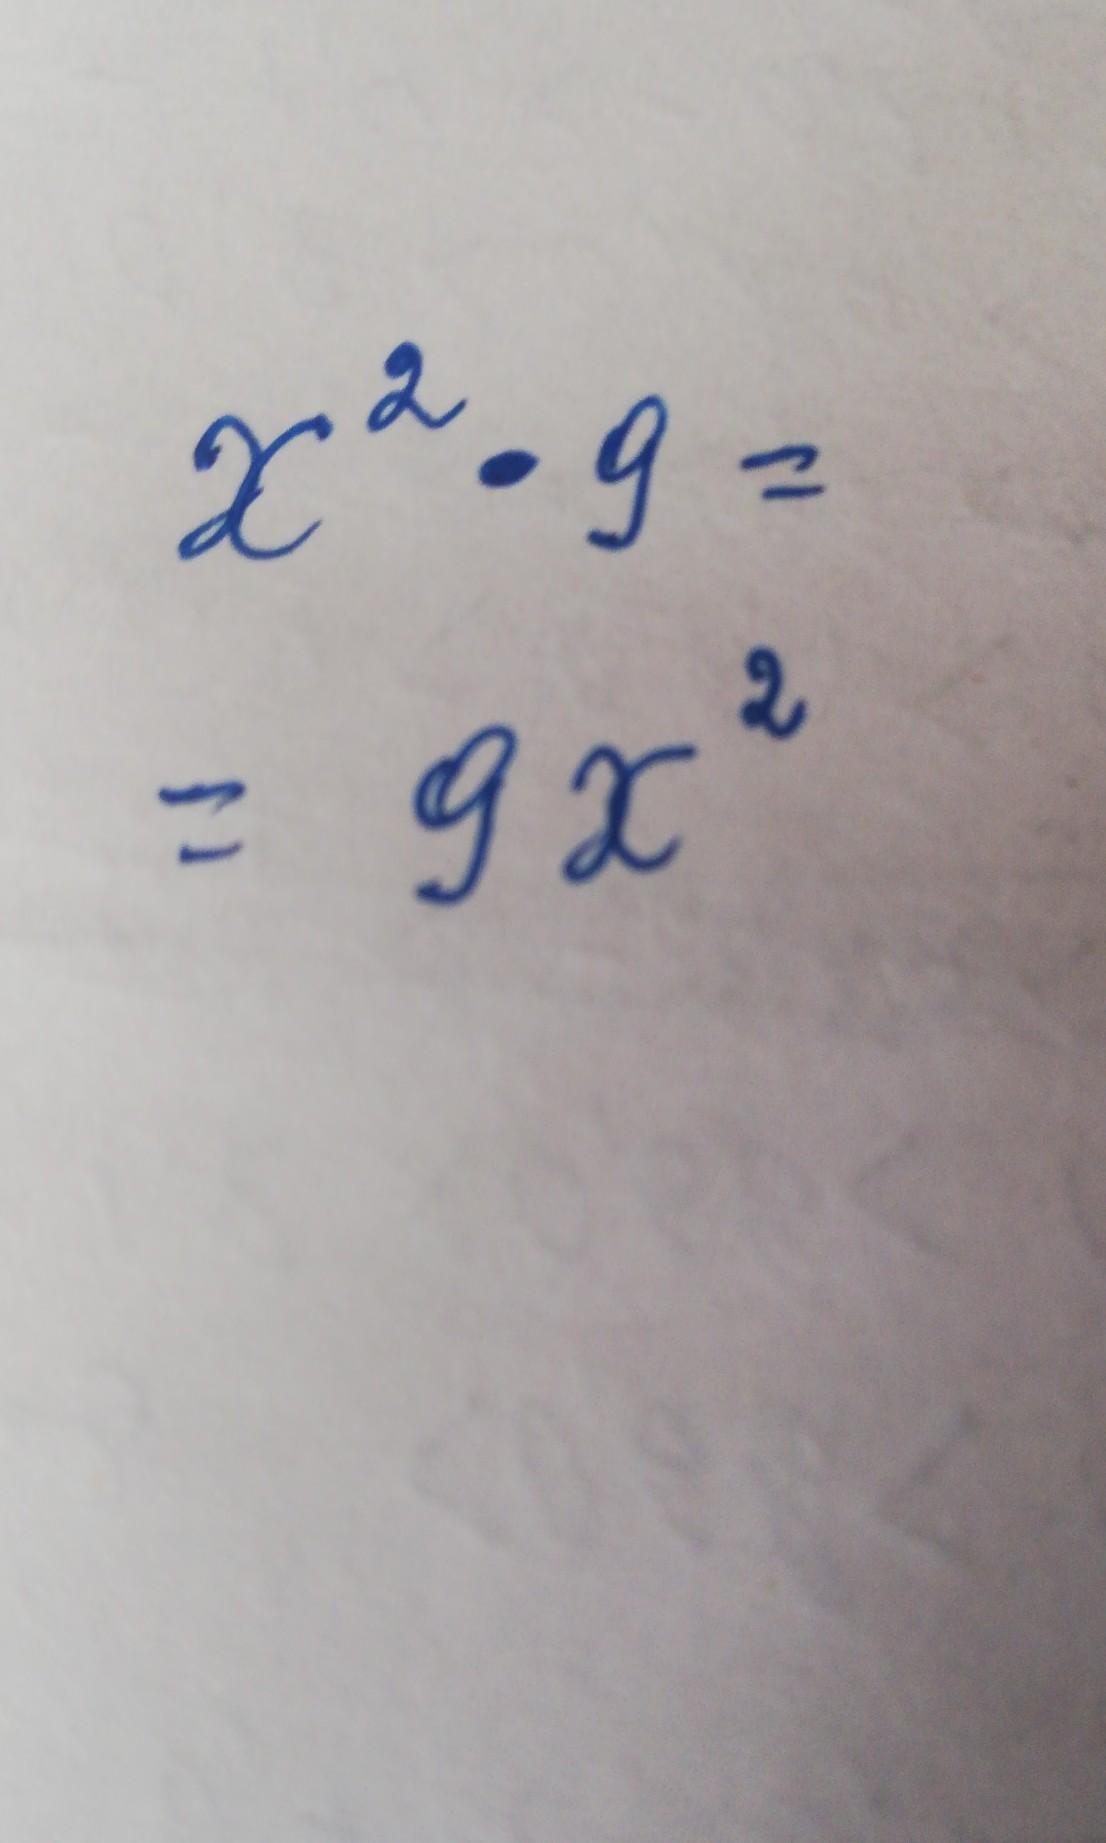 x² · 9 =
= 9x²